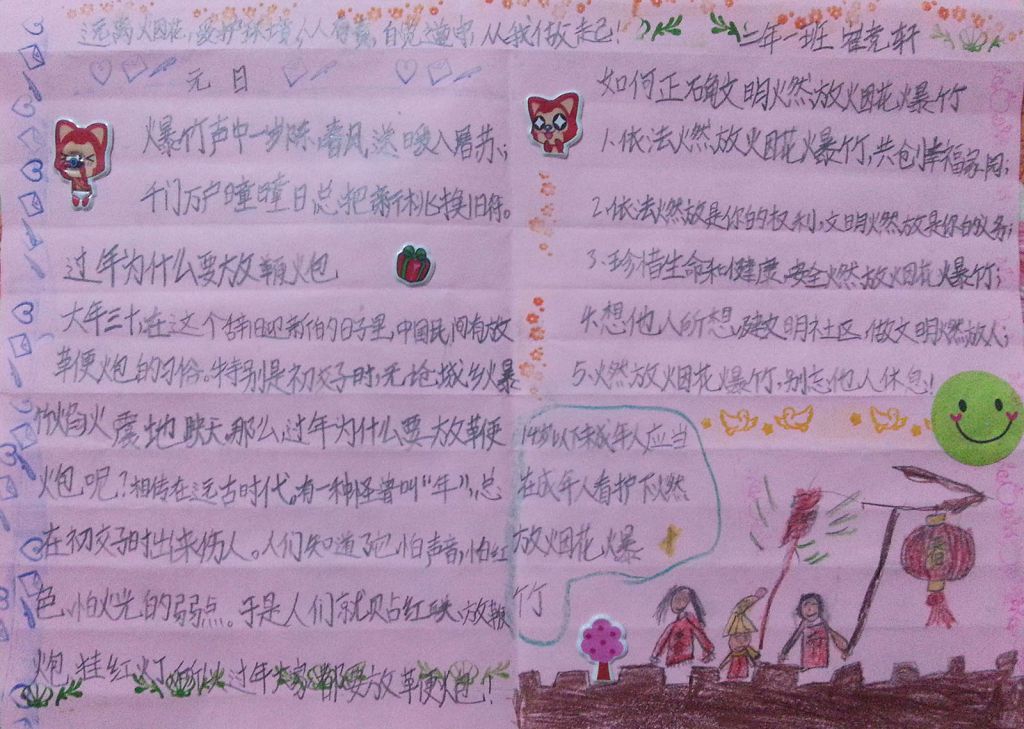 远离烟花,爱护环境,人人有责,自觉遵守,从我做起!
二年一班 崔竞轩
元日
爆竹声中一岁除,春风送暖入屠苏;
千门万户曈曈日,总把新桃换旧符。
过年为什么要放鞭火包
大年三十,在这个辞旧迎新的日子里,中国民间有放
革便火包的习俗。特别是初交子时,无论城乡火暴
竹焰火震地映天,那么过年为什么要放革便
火包呢?相传在远古时代,有一种怪兽叫“年”,总
在初交子时出来伤人。人们知道了它怕声音,怕红
色,怕火光的弱点。于是人们就贴红联、放鞭
火包、挂红灯,所以过年大家都要放革便火包!
如何正确文明火然放火因花火暴竹
1.依法火然放火因花火暴竹,共创幸福家园;
2.依法火然放是你的权利,文明火然放是你的义务;
3.珍惜生命和健康,安全火然放火因花火暴竹;
4.想他人所想,建文明社区,做文明燃放人;
5.火然放火因花火暴竹,别忘他人休息!
14岁以下未成年人应当
在成年人看护下火然
放火因花火暴
竹
春